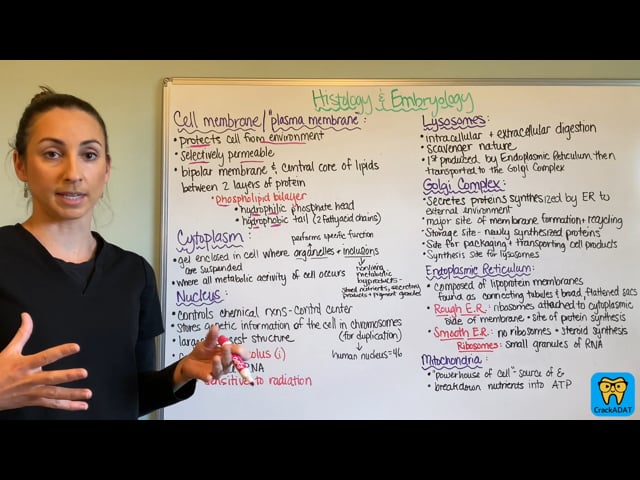 Histology & Embryology
Cell membrane/"plasma membrane":
• protects cell from environment
• selectively permeable
• bipolar membrane & central core of lipids
between 2 layers of protein
• phospholipid bilayer
• hydrophilic phosphate head
• hydrophobic tail (2 fatty acid chains)
Cytoplasm
performs specific function
• gel enclosed in cell where organelles + inclusions
are suspended
• Where all metabolic activity of cell occurs
nonliving
metabolic
byproducts-
stored nutrients, secretory
products + pigment granules
Nucleus:
• controls chemical rxns-control center
• Stores genetic information of the cell in chromosomes
(for duplication)
human nucleus=46
est structure
olus (i)
NA
sensitive to radiation
Lysosomes:
• intracellular + extracellular digestion
• Scavenger nature
• 1st produced by Endoplasmic Reticulum then
transported to the Golgi Complex
Golgi Complex:
• Secretes proteins synthesized by ER to
external environment
• major site of membrane formation + recycling
• Storage site - newly synthesized proteins
• Site for packaging + transporting cell products
• Synthesis site for lysosomes
Endoplasmic Reticulum:
• composed of lipoprotein membranes
found as connecting tubules & broad, flattened sacs
• Rough E.R.: ribosomes attached to cytoplasmic
side of membrane • site of protein synthesis
• Smooth E.R.: no ribosomes • steroid synthesis
Ribosomes: small granules of RNA
Mitochondria:
• "powerhouse of cell"- source of E
• breakdown nutrients into ATP
CrackADAT